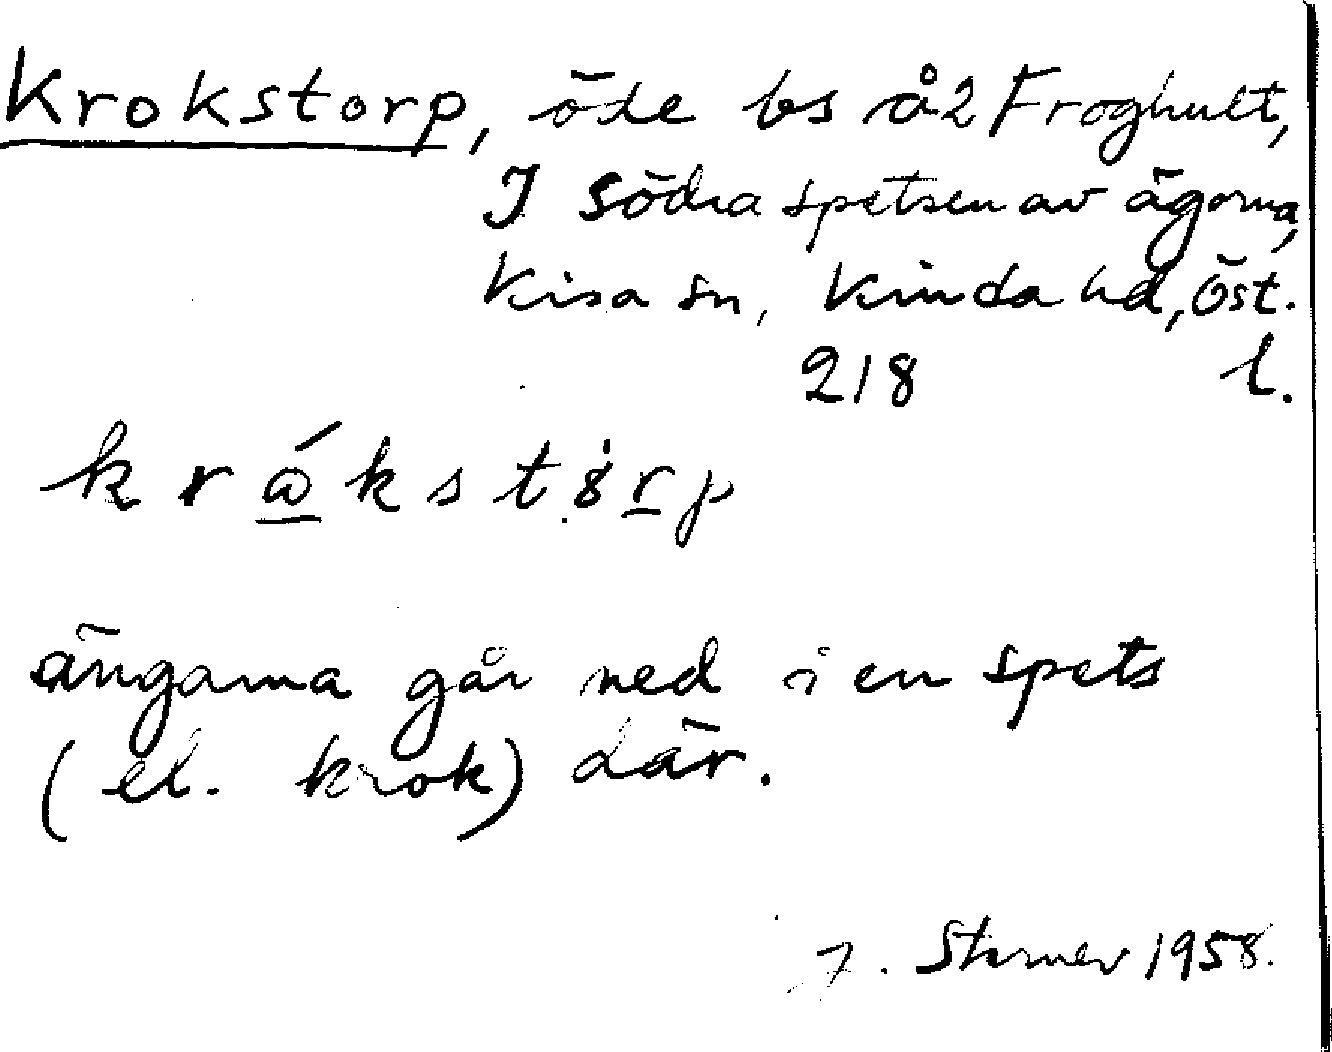 Krokstorp, öde bs å2 Froghult,
I södra spetsen av ägorna,
Kisa sn, Kinda hd, Öst.
218 l.
krǻkstørp
ängarna går ned i en spets
(el. krok) där.
J. Sterner 1958.